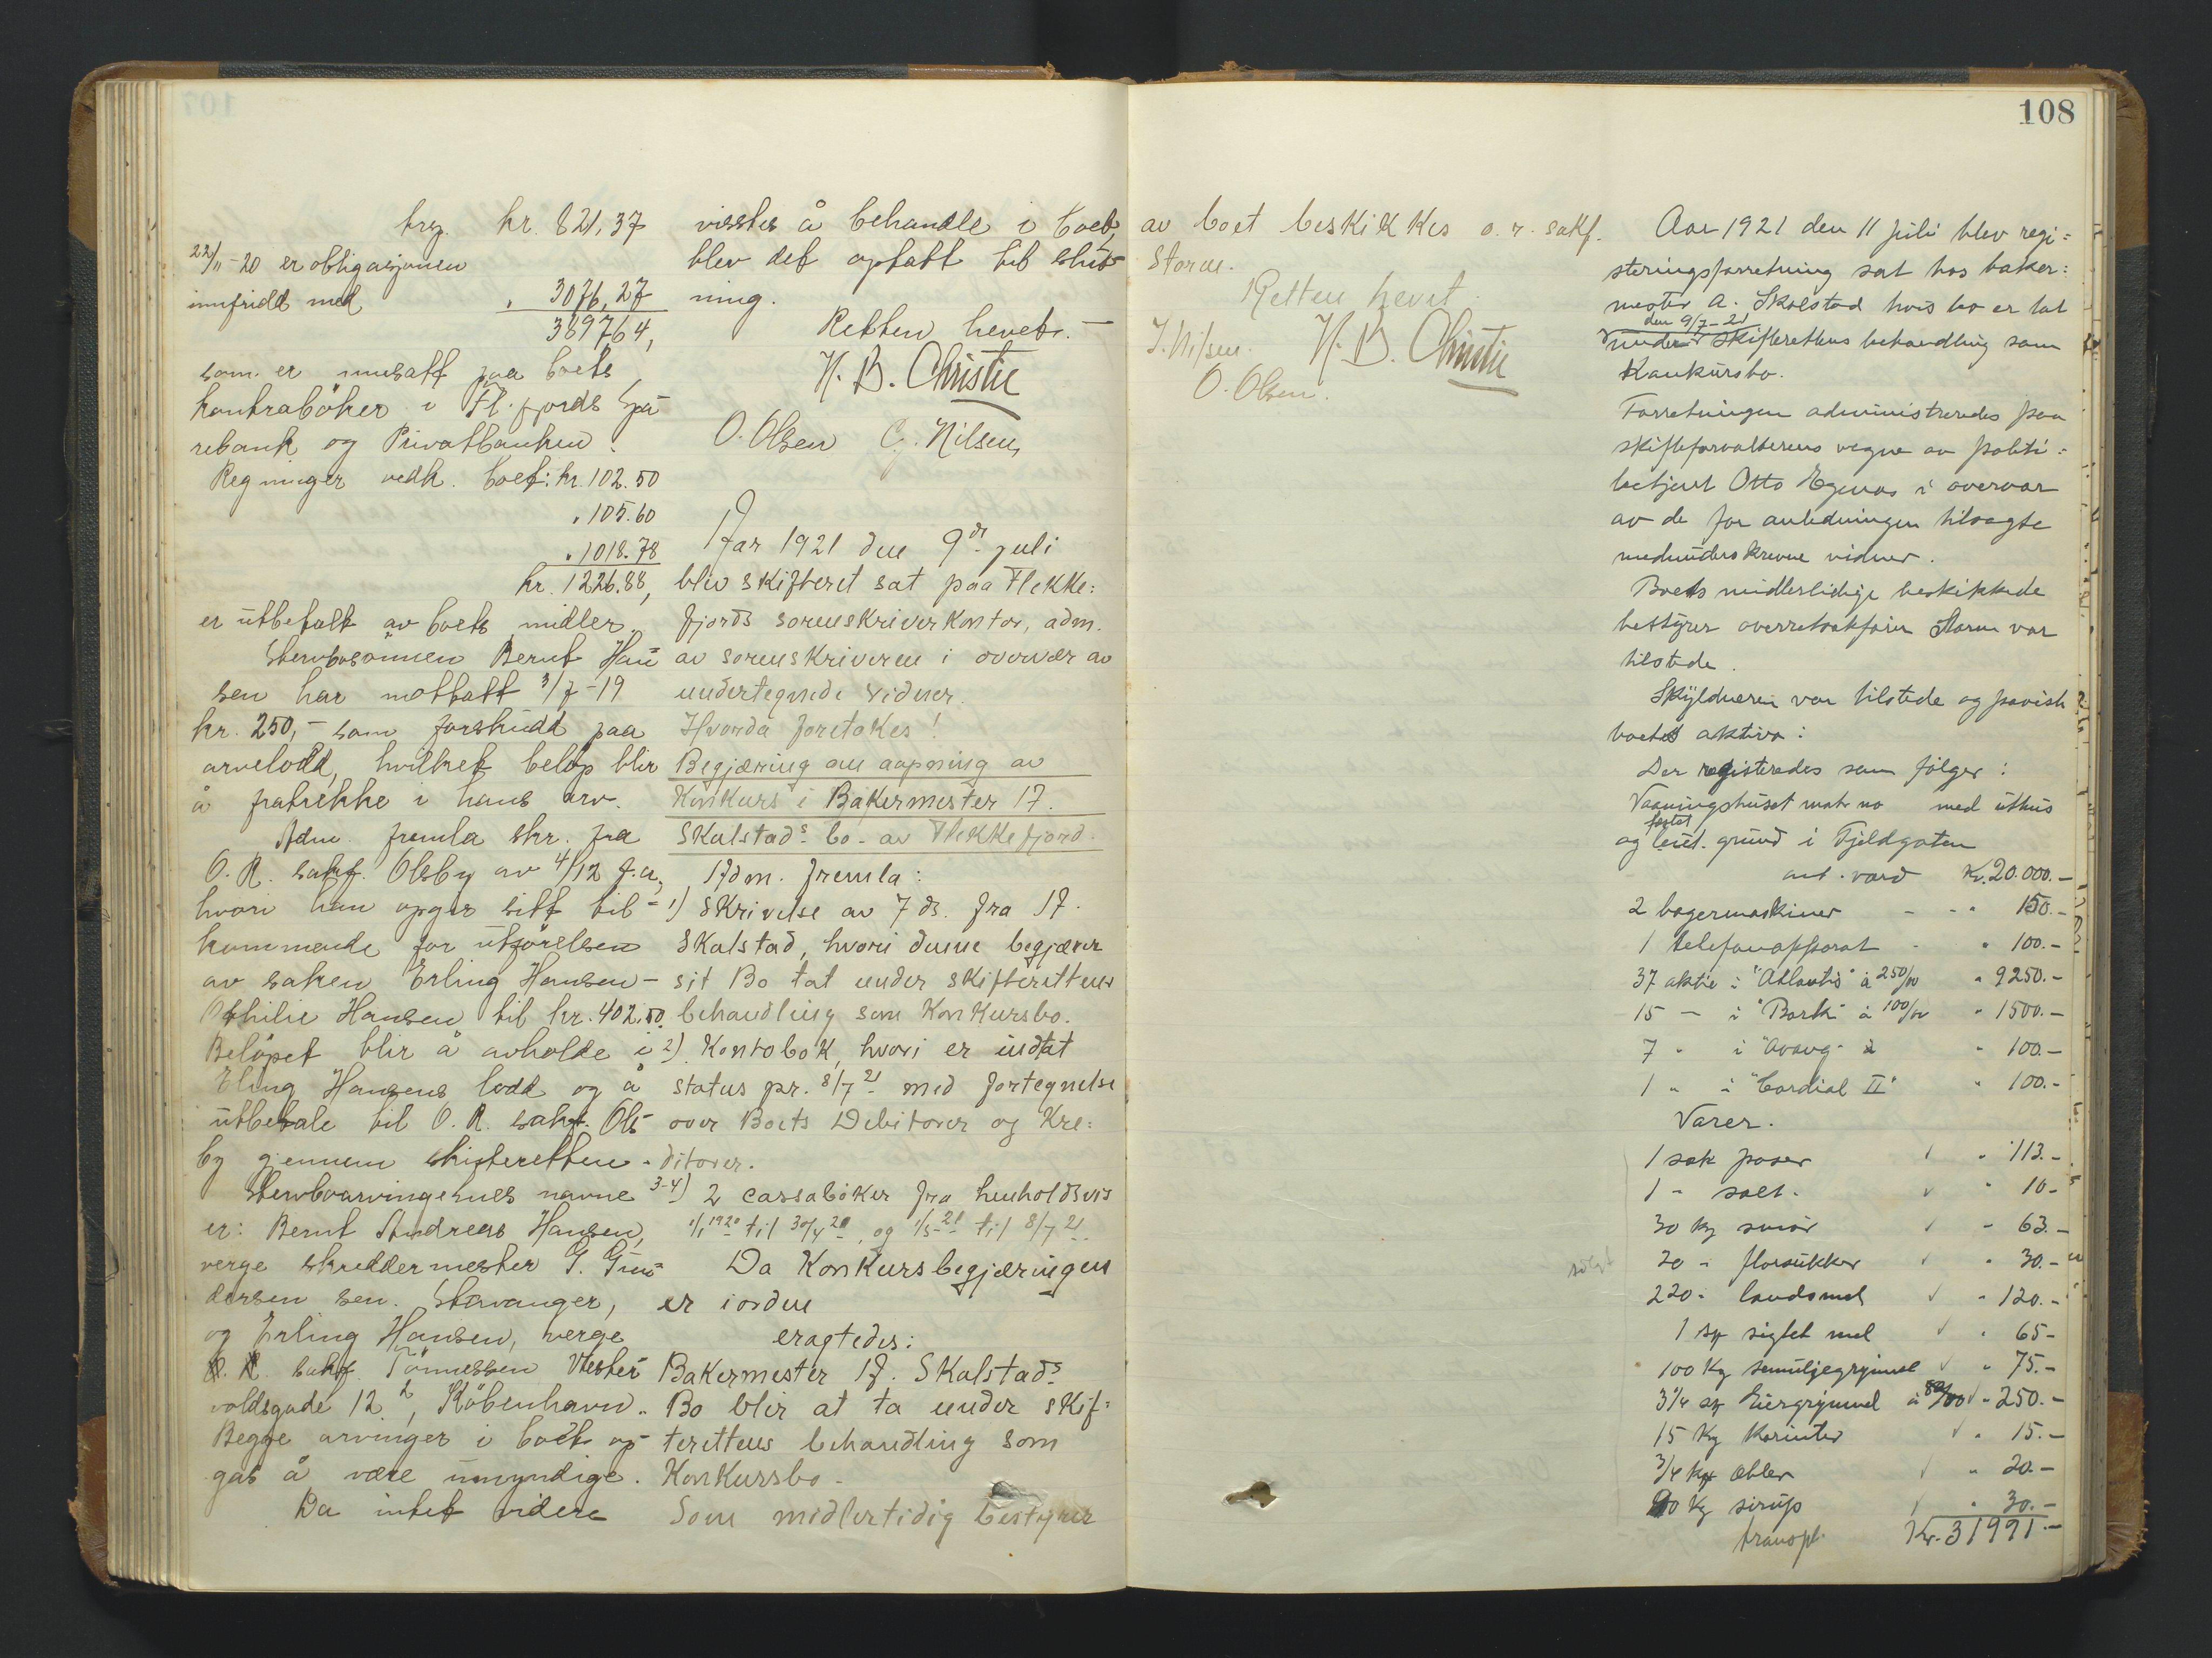 trsp. kr. 821,37
22/11-20 er obligasjonen
innfridd med " 3076,27
389764,
som er innsatt paa boets
kontrabøker i Fl.fjords Spa-
rebank og Privatbanken.
Regninger vedk. boet: kr. 102.50
" 105.60
" 1018.78
kr. 1226.88,
er utbetalt av boets midler.
Stervbosønnen Bernt Han-
sen har mottatt 3/7-19
kr. 250,- som forskudd paa
arvelodd, hvilket beløp blir
å fratrekke i hans arv.
Adm. fremla skr. fra
O. R. sakf. Olsby av 4/12 f.a,
hvori han opgir sitt til-
kommende for utførelsen
av saken Erling Hansen -
Othilie Hansen til kr. 402.50.
Beløpet blir å avholde i
Erling Hansens lodd og å
utbetale til O. R. sakf. Ols-
by gjennem skifteretten.
Stervboarvingernes navne
er: Bernt Andreas Hansen,
verge skreddermester G. Gun-
dersen sen. Stavanger,
og Erling Hansen, verge
O. R. sakf. Tönnessen Vester-
voldsgade 12, København.
Begge arvinger i boet op-
gas å være umyndige.
Da intet videre
visstes å behandle i boet,
blev det optatt til slut-
ning.
Retten hevet. -
H. B. Christie
O. Olsen J. Nilsen
Aar 1921 den 9de juli
blev skifteret sat paa Flekke:
fjords sorenskriverkontor, adm.
av sorenskriveren i overvær av
undertegnede vidner.
Hvorda foretokes!
Begjæring om aapning av
Konkurs i Bakermester A.
Skalstads bo - av Flekkefjord.
Adm. fremla:
1) Skrivelse av 7 ds. fra A.
Skalstad, hvori denne begjærer
sit Bo tat under skifterettens
behandling som Konkursbo.
2) Kontobok, hvori er indtat
status pr. 8/7 21 med fortegnelse
over Boets Debitorer og Kre:
ditorer.
3-4) 2 cassabøker fra henholdsvis
1/1 1920 til 30/4 21, og 1/5-21 til 8/7 21.
Da Konkursbegjæringen
er iorden
eragtedes:
Bakermester A. Skalstads
Bo blir at ta under skif:
terettens behandling som
Konkursbo -
Som midlertidig bestyrer
108
av boet beskikkes o. r. sakf.
Storm.
Retten hevet.
J. Nilsen. H. B. Christie
O. Olsen.
Aar 1921 den 11 juli blev regi:
steringsforretning sat hos baker:
mester A. Skalstad hvis bo er tat
den 9/7-21
under skifterettens behandling som
Konkursbo.
Forretningen administreredes paa
skifteforvalterens vegne av politi:
betjent Otto Egenes i overvær
av de for anledningen tilsagte
medunderskrevne vidner.
Boets midlertidige beskikkede
bestyrer overretssakfører Storm var
tilstede.
Skyldneren var tilstede og paaviste
boets aktiva:
Der registeredes som følger:
Vaaningshuset matr no med uthus
festet
og leiet. grund i Fjeldgaten
ant. værd Kr. 20.000.-
2 bagermaskiner - - " 150.-
1 telefonapparat - " 100.-
37 aktie i "Atlantis" à 250/00 " 9250.-
15 - i "Bark" à 100/00 " 1500.-
7 " i à " 100.-
1 " i "Cordial II" " 100.-
Varer.
1 sæk poser √ " 113.-
1 - salt. √ " 10-
30 kg smør √ " 63.-
solgt
20 - florsukker √ " 30.-
220 - landsmel √ " 120.-
1 sæk sigtet mel √ " 65-
100 kg semuljegrynmel √ " 75.-
3 1/4 sæk hvergrynmel à 80/00 √ " 250.-
15 kg Korinter √ " 15.-
3/4 kg æbler √ " 20.-
20 kg sirup √ " 30.-
transpt. Kr. 31991.-